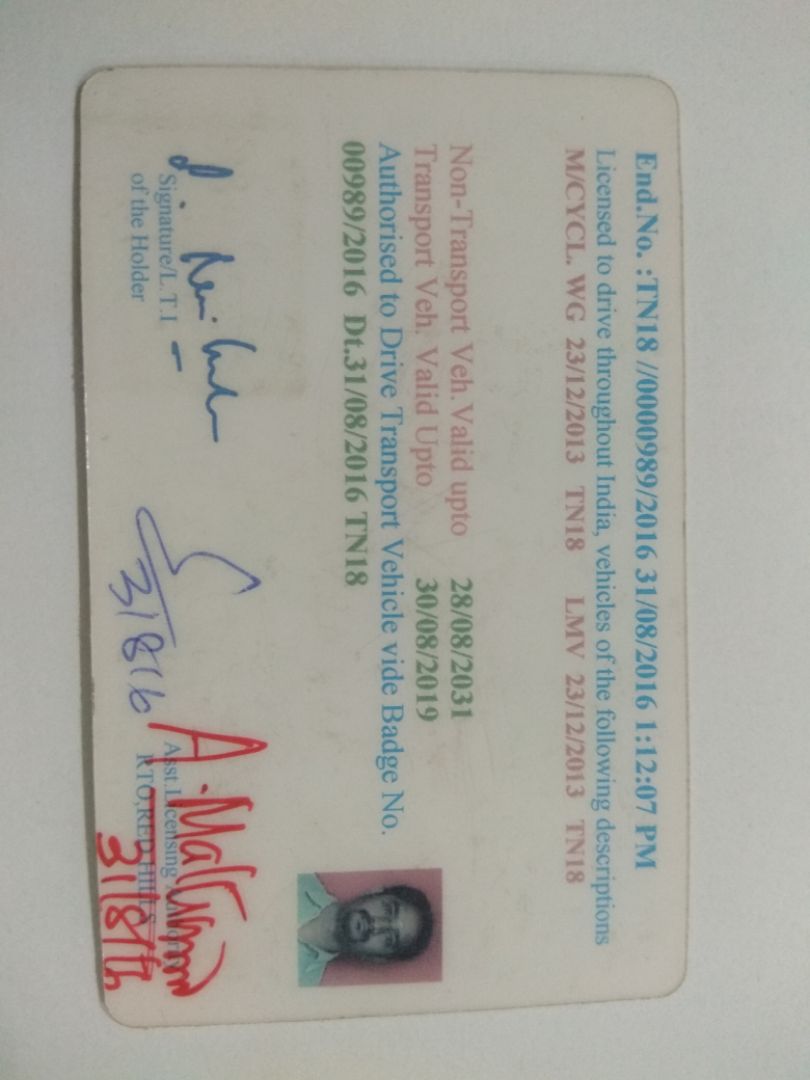 End.No. :TN18 //0000989/2016 31/08/2016 1:12:07 PM
Licensed to drive throughout India, vehicles of the following descriptions
M/CYCL. WG 23/12/2013 TN18 LMV 23/12/2013 TN18
Non-Transport Veh.Valid upto 28/08/2031
Transport Veh. Valid Upto 30/08/2019
Authorised to Drive Transport Vehicle vide Badge No.
00989/2016 Dt.31/08/2016 TN18
Signature/L.T.I
of the Holder
Asst.Licensing
RTO,RED HILLS